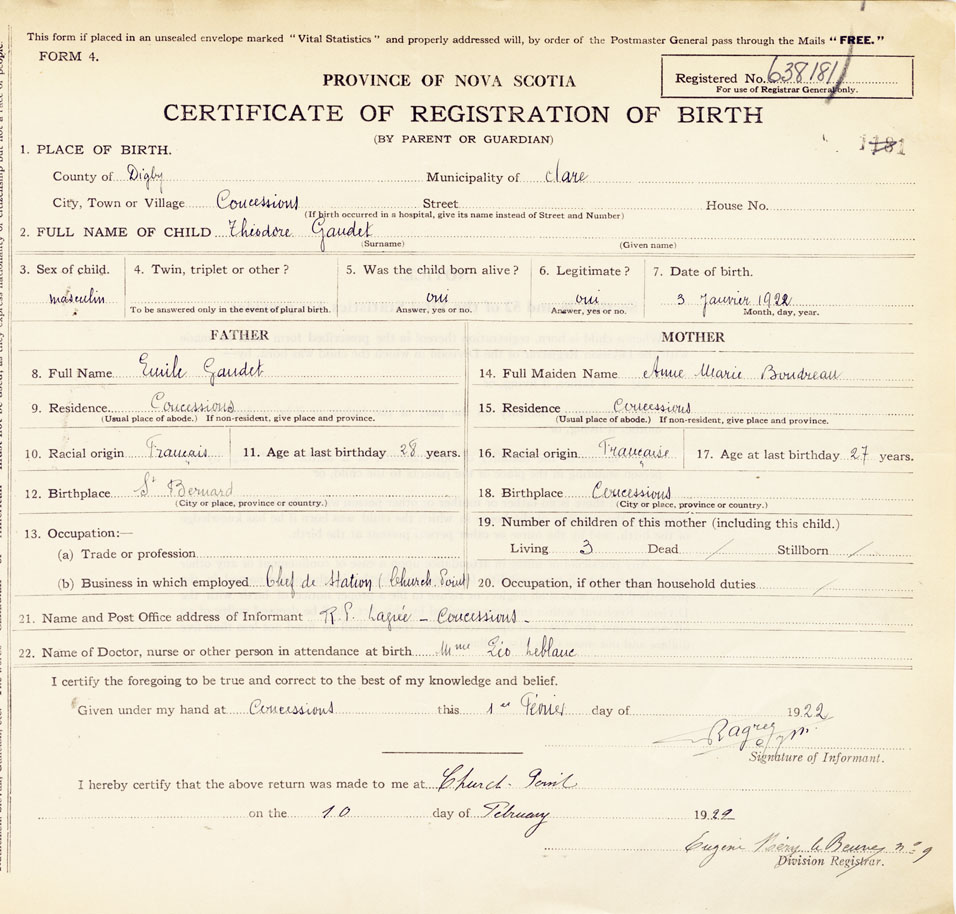 This form if placed in an unsealed envelope marked "Vital Statistics" and properly addressed will, by order of the Postmaster General pass through the Mails "FREE."
FORM 4.
PROVINCE OF NOVA SCOTIA
Registered No. 638181
For use of Registrar General only.
CERTIFICATE OF REGISTRATION OF BIRTH
(BY PARENT OR GUARDIAN)
1. PLACE OF BIRTH.
County of Digby Municipality of Clare
City, Town or Village Concessions Street House No.
(If birth occurred in a hospital, give its name instead of Street and Number)
2. FULL NAME OF CHILD Théodore Gaudet
(Surname) (Given name)
3. Sex of child. 4. Twin, triplet or other? 5. Was the child born alive? 6. Legitimate? 7. Date of birth.
masculin oui oui 3 Janvier 1922
To be answered only in the event of plural birth. Answer, yes or no. Answer, yes or no. Month, day, year.
FATHER MOTHER
8. Full Name Emile Gaudet 14. Full Maiden Name Anne Marie Boudreau
9. Residence Concessions 15. Residence Concessions
(Usual place of abode.) If non-resident, give place and province. (Usual place of abode.) If non-resident, give place and province.
10. Racial origin Français 11. Age at last birthday 28 years. 16. Racial origin Française 17. Age at last birthday 27 years.
12. Birthplace St Bernard 18. Birthplace Concessions
(City or place, province or country.) (City or place, province or country.)
13. Occupation:— 19. Number of children of this mother (including this child.)
(a) Trade or profession Living 3 Dead / Stillborn /
(b) Business in which employed Chef de Station (Church Point) 20. Occupation, if other than household duties /
21. Name and Post Office address of Informant R.P. Lagrée - Concessions -
22. Name of Doctor, nurse or other person in attendance at birth Mme Léo Leblanc
I certify the foregoing to be true and correct to the best of my knowledge and belief.
Given under my hand at Concessions this 1er Février day of 1922
Signature of Informant.
I hereby certify that the above return was made to me at Church Point
on the 10 day of February 1922
Eugene
Division Registrar.